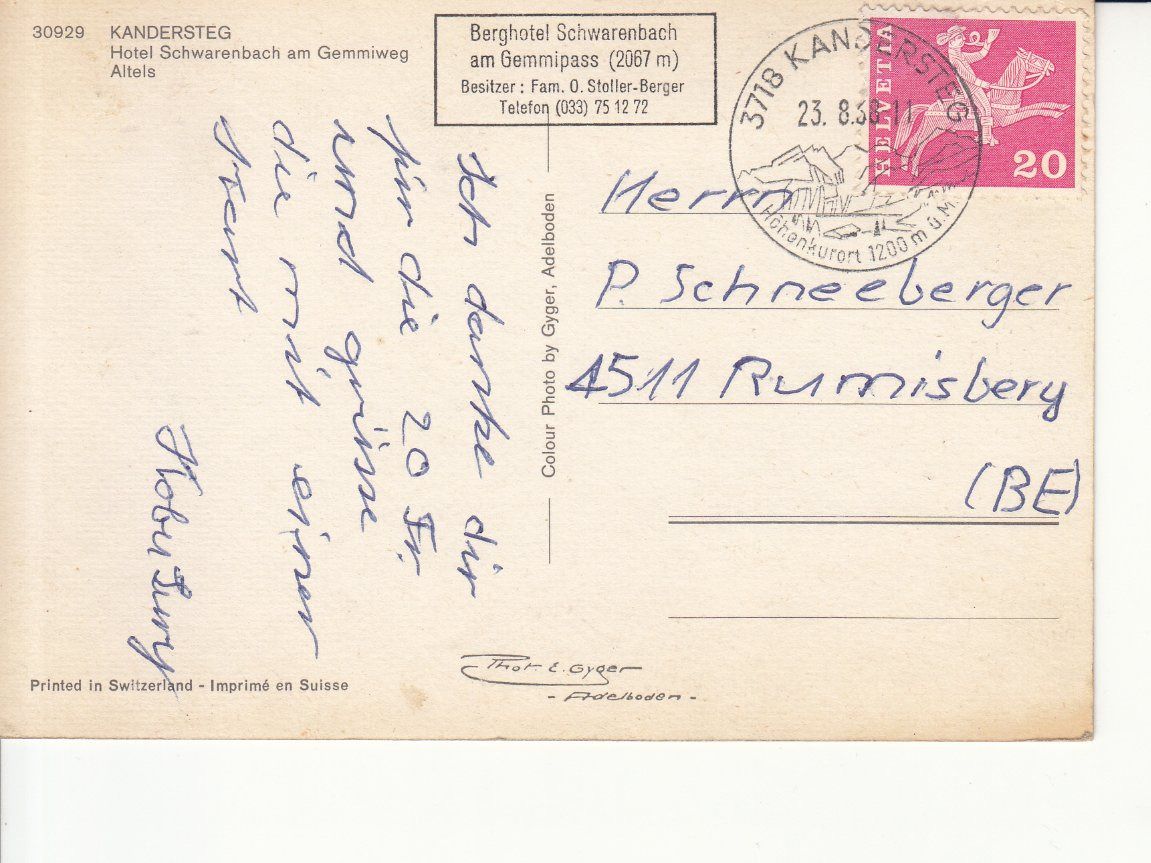 30929 KANDERSTEG
Hotel Schwarenbach am Gemmiweg
Altels
Berghotel Schwarenbach
am Gemmipass (2067 m)
Besitzer : Fam. O. Stoller-Berger
Telefon (033) 75 12 72
3718 KANDERSTEG
23. 8.68-11
Höhenkurort 1200 m ü. M.
HELVETIA
20
Ich danke dir
für die 20 Fr.
und grüsse
die mit einer
Kart
Colour Photo by Gyger, Adelboden
Herrn
P. Schneeberger
4511 Rumisberg
(BE)
Phot. E. Gyger
- Adelboden -
Printed in Switzerland - Imprimé en Suisse